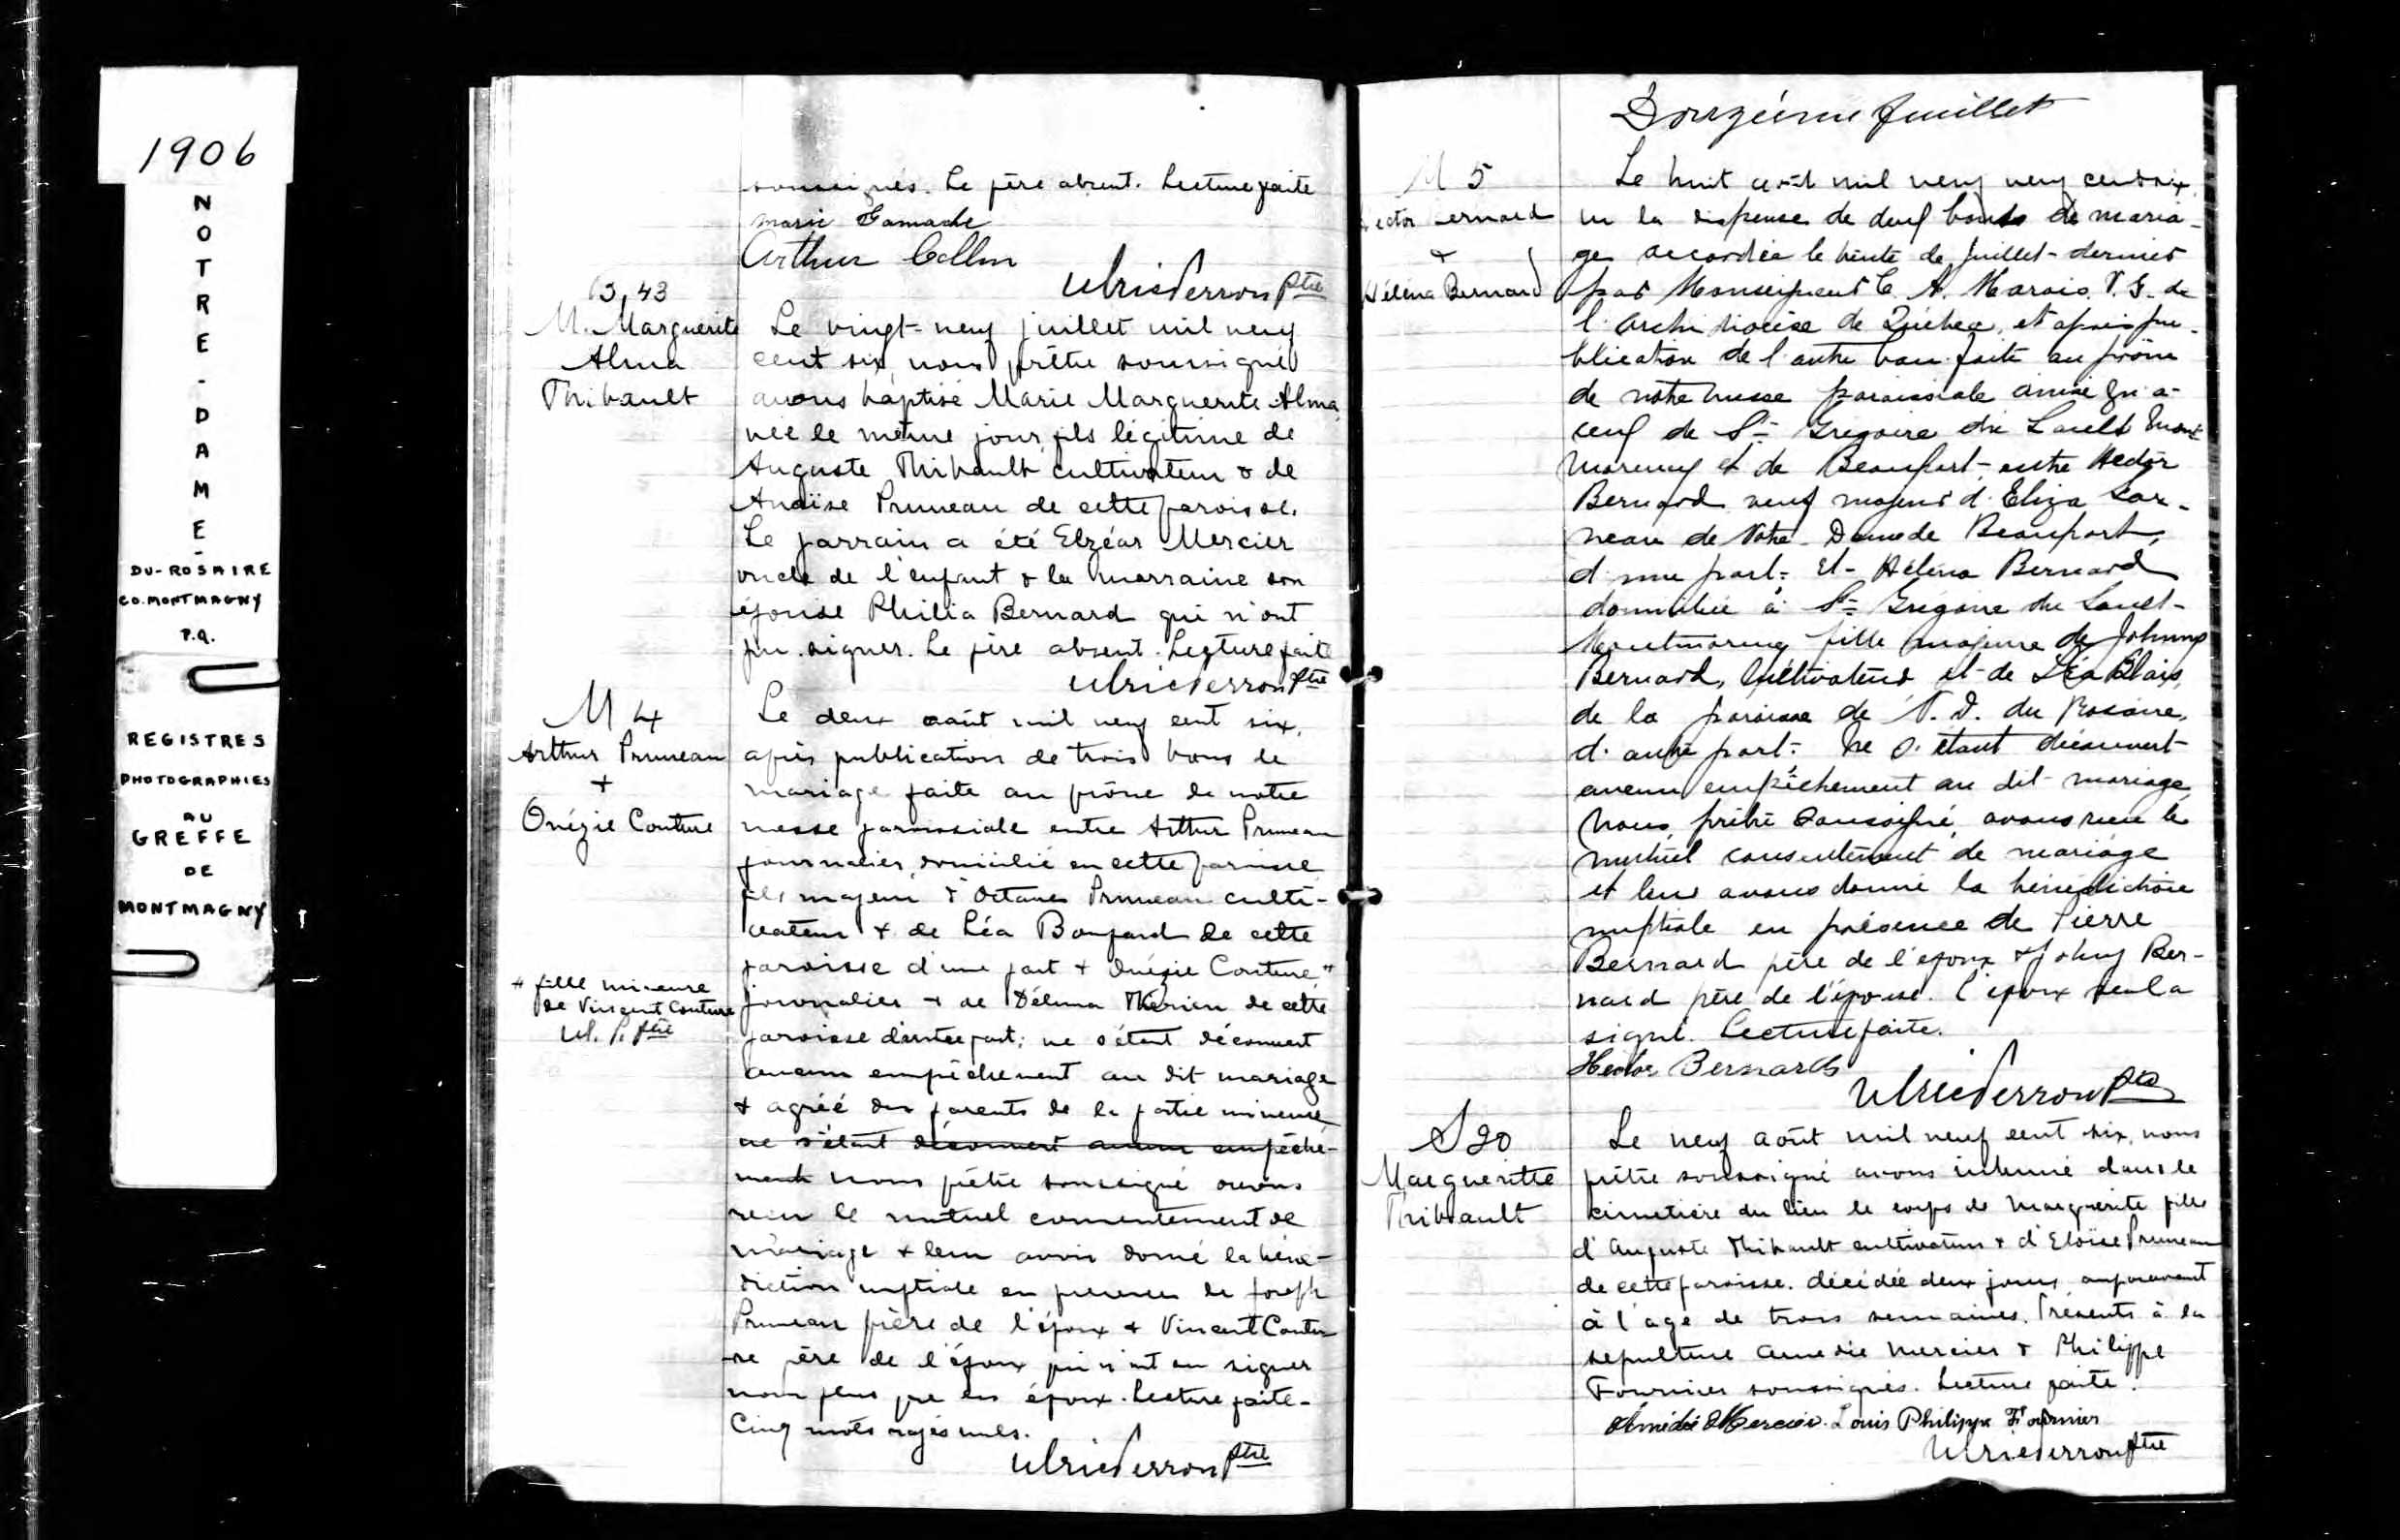 1906
NOTRE-DAME-
DU-ROSAIRE
CO. MONTMAGNY
P.Q.
REGISTRES
PHOTOGRAPHIES
AU
GREFFE
DE
MONTMAGNY
soussignés. Le père absent. Lecture faite
Marie Gamache
Arthur Collin
Ulric Perron Ptre
B, 43
M. Marguerite
Alma
Thibault
Le vingt-neuf juillet mil neuf
cent six, nous prêtre soussigné
avons baptisé Marie Marguerite Alma
née le même jour, fils légitime de
Auguste Thibault cultivateur & de
Anaïse Pruneau de cette paroisse.
Le parrain a été Elzéar Mercier
oncle de l'enfant & la marraine son
épouse Philia Bernard qui n'ont
pu signer. Le père absent. Lecture faite
Ulric Perron Ptre
M 4
Arthur Pruneau
+
Onézie Couture
Le deux août mil neuf cent six,
après publication de trois bans de
mariage faite au prône de notre
messe paroissiale entre Arthur Pruneau
journalier, domicilié en cette paroisse
fils majeur d'Octave Pruneau culti-
vateur & de Léa Bouffard de cette
paroisse d'une part & Onézie Couture #
# fille mineure
de Vincent Couture
Ul. P. Ptre
journalier & de Délima Thérien de cette
paroisse d'autre part; ne s'étant découvert
aucun empêchement au dit mariage
& agréé des parents de la partie mineure
ne s'étant découvert aucun empêche-
ment nous prêtre soussigné avons
reçu le mutuel consentement de
mariage & leur avons donné la béné-
diction nuptiale en présence de Joseph
Pruneau frère de l'époux & Vincent Coutu
re père de l'époux qui n'ont su signer
non plus que les époux. Lecture faite.
Cinq mots rayés nuls.
Ulric Perron Ptre
Douzième feuillet
M 5
Hector Bernard
&
Héléna Bernard
Le huit août mil neuf neuf cent six,
vu la dispense de deux bans de maria-
ge accordée le trente de juillet dernier
par Monseigneur C. A. Marois. V. G. de
l'archidiocèse de Québec, et après pu-
blication de l'autre ban faite au prône
de notre messe paroissiale ainsi qu'à
ceux de St Grégoire du Sault Mont
Morency et de Beauport, entre Hector
Bernard veuf majeur d'Eliza Gar-
neau de Notre-Dame de Beauport,
d'une part; Et Héléna Bernard
domiciliée à St Grégoire du Sault-
Montmorency fille majeure de Johnny
Bernard, Cultivateur et de Léa Blais,
de la paroisse de N. D. du Rosaire,
d'autre part; Ne s'étant découvert
aucun empêchement au dit mariage,
Nous, prêtre soussigné, avons reçu le
mutuel consentement de mariage
et leur avons donné la bénédiction
nuptiale en présence de Pierre
Bernard père de l'époux & Johny Ber-
nard père de l'épouse. L'époux seul a
signé. Lecture faite.
Hector Bernard
Ulric Perron Ptre
S 20
Marguerite
Thibault
Le neuf août mil neuf cent six, nous
prêtre soussigné avons inhumé dans le
cimetière du lieu le corps de Marguerite fille
d'Auguste Thibault cultivateur & d'Eloïse Pruneau
de cette paroisse. décédée deux jours auparavant
à l'age de trois semaines. Présents à la
sepulture Amédée Mercier & Philippe
Fournier soussignés. Lecture faite.
Amédée Mercier. Louis Philippe Fournier
Ulric Perron Ptre